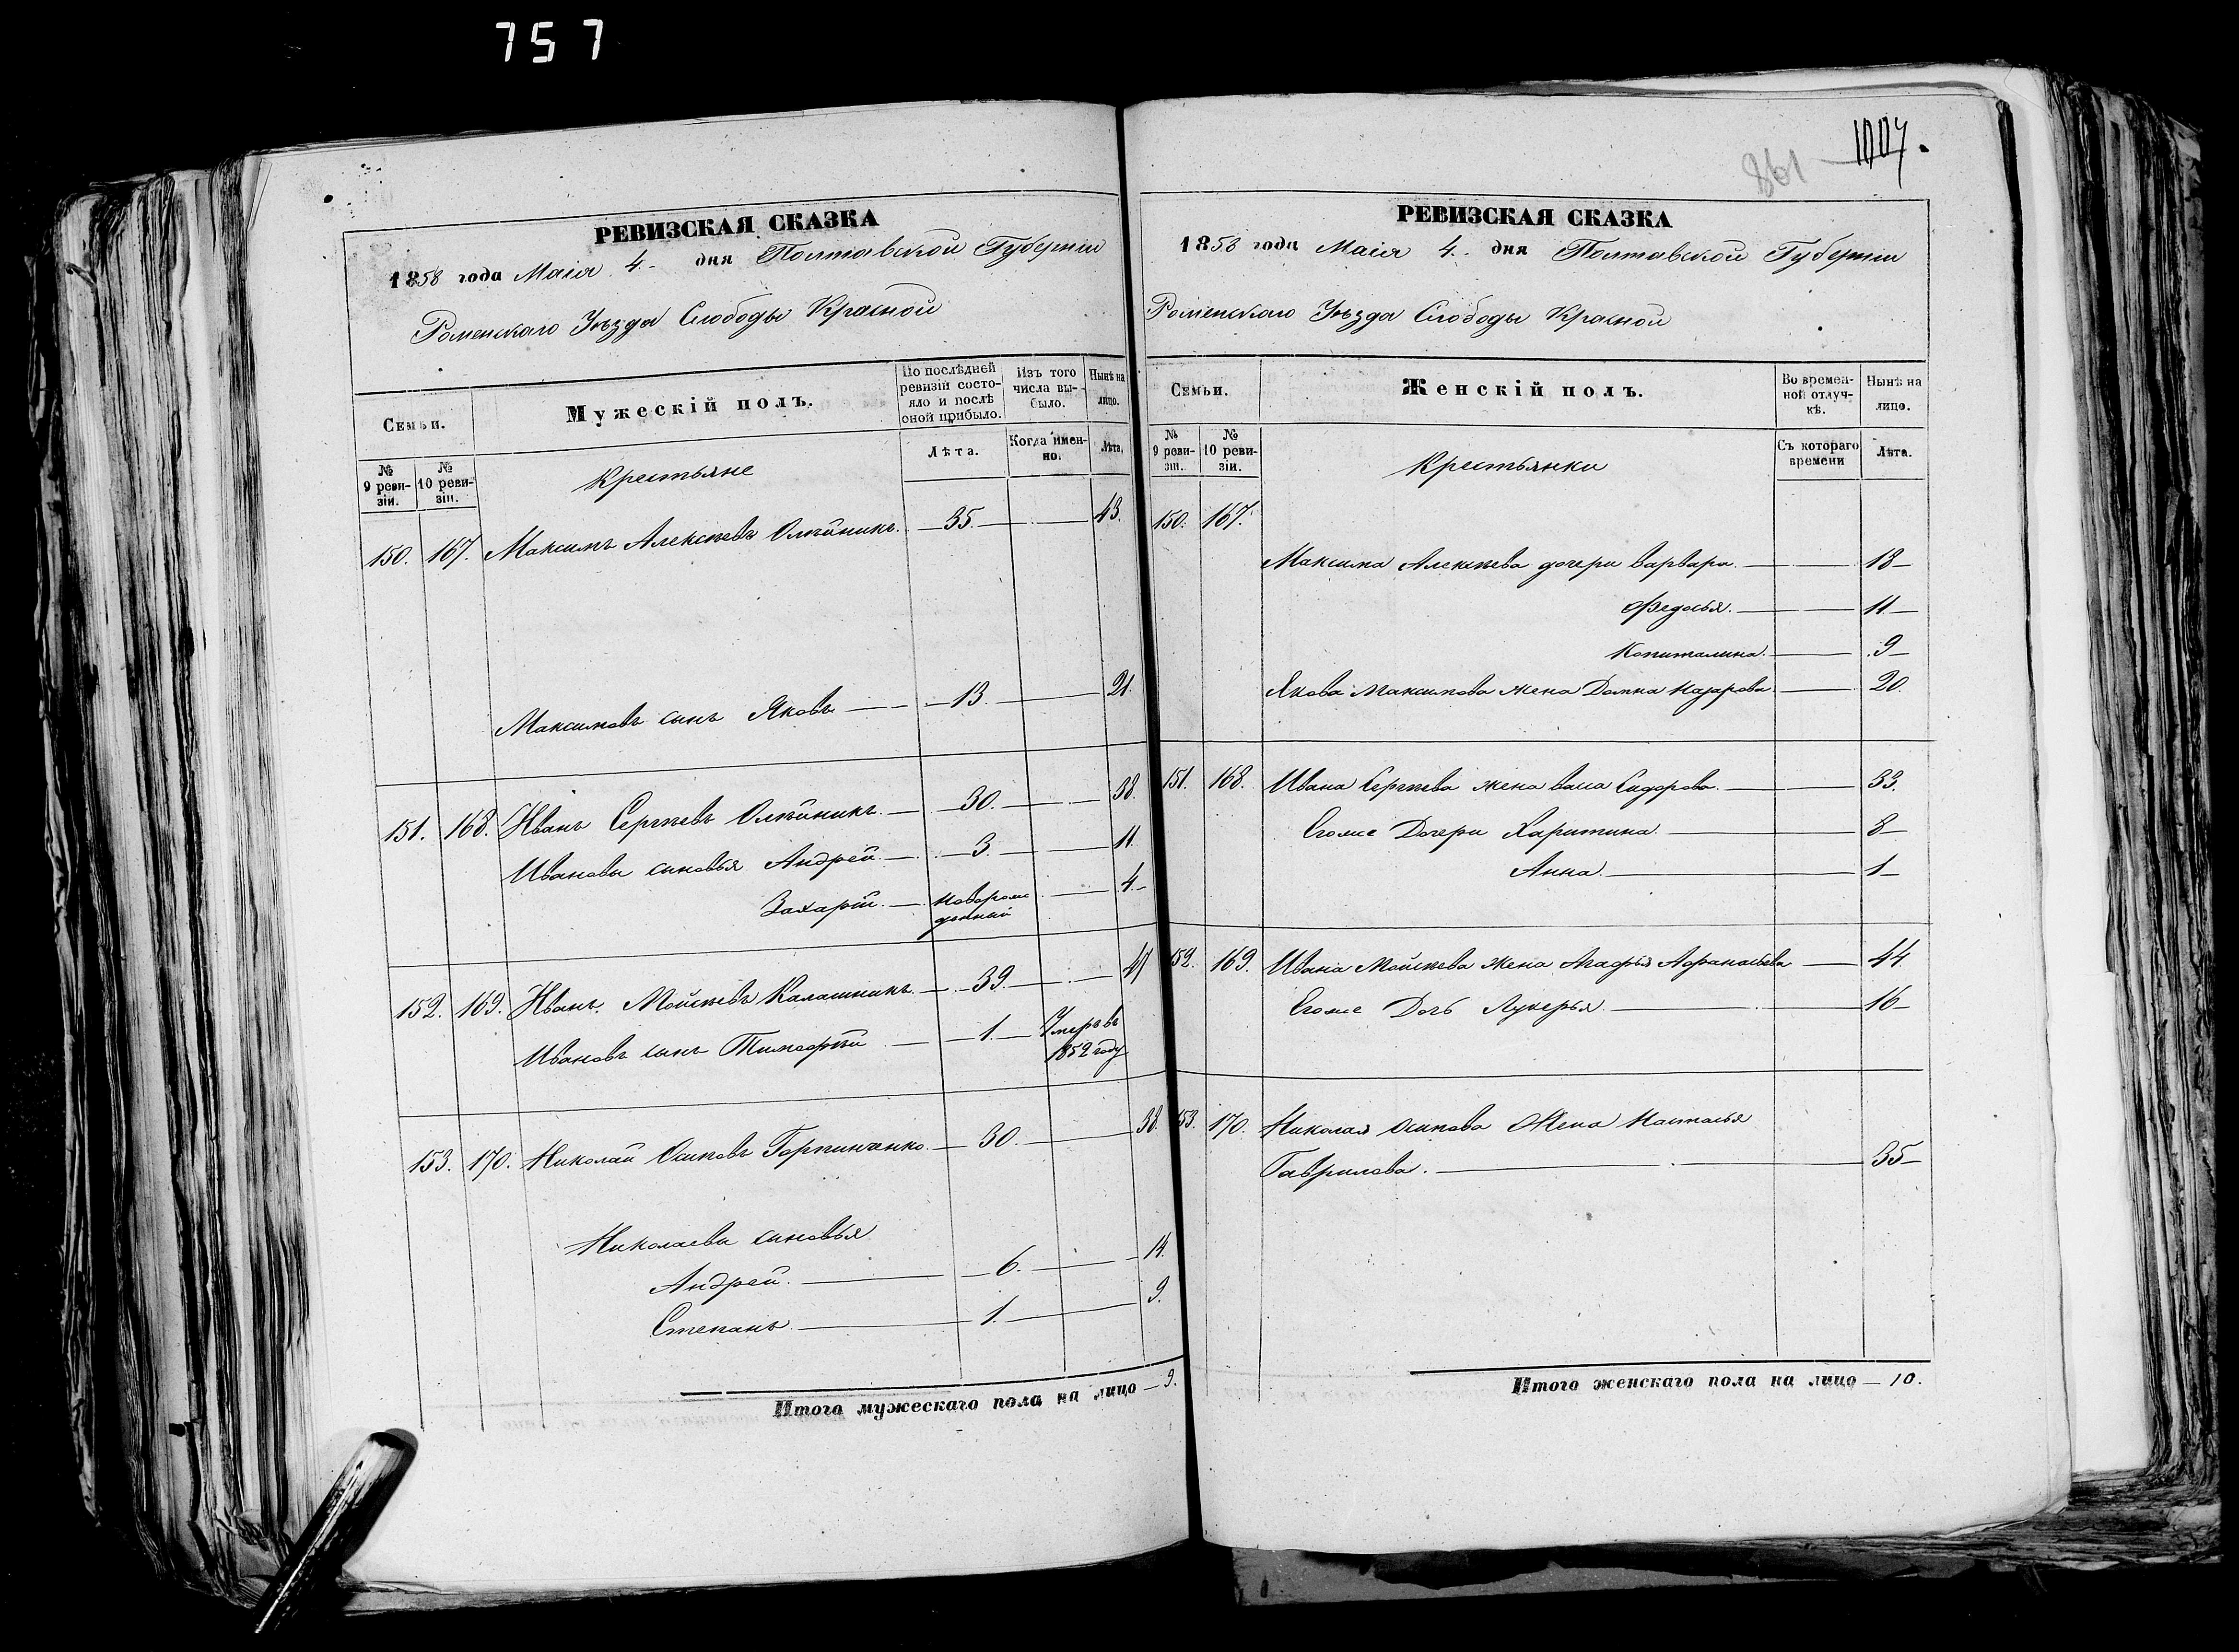 757
РЕВИЗСКАЯ СКАЗКА
1858 года Маія 4. дня Полтавской Губерніи
Роменскаго Уѣзда Слободы Красной
Семьи.
Мужескій полъ.
По послѣдней ревизіи состояло и послѣ оной прибыло.
Изъ того числа выбыло.
Нынѣ на лицо.
№ 9 ревизіи.
№ 10 ревизіи.
Крестьяне
Лѣта.
Когда именно.
Лѣта.
150. 167. Максимъ Алексѣевъ Олѣйникъ. 35. 43.
Максимовъ сынъ Яковъ 13. 21.
151. 168. Иванъ Сергѣевъ Олѣйникъ. 30. 38.
Ивановы сыновья Андрей 3. 11.
Захарій. новорожденный 4.
152. 169. Иванъ Мойсѣевъ Калашникъ 39. 47
Ивановъ сынъ Тимофѣй 1. Умеръ въ 1852 году
153. 170. Николай Осиповъ Горпинченко 30. 38.
Николаевы сыновья
Андрей. 6. 14.
Степанъ 1. 9.
Итого мужескаго пола на лицо 9.
861 1007.
РЕВИЗСКАЯ СКАЗКА
1858 года Маія 4. дня Полтавской Губерніи
Роменскаго Уѣзда Слободы Красной
Семьи.
Женскій полъ.
Во временной отлучкѣ.
Нынѣ на лицо.
№ 9 ревизіи.
№ 10 ревизіи.
Крестьянки
Съ котораго времени
Лѣта.
150. 167.
Максима Алексѣева дочери Варвара. 18
Федосья. 11
Капиталина. 9
Якова Максимова жена Домна Назарова 20.
151. 168. Ивана Сергѣева жена Васса Сидорова. 33.
Егоже Дочери Харитина. 8
Анна. 1
152. 169. Ивана Мойсѣева Жена Агафья Афанасьева 44.
Егоже Дочь Лукерья. 16
153. 170. Николая Осипова Жена Настасья
Гаврилова. 35
Итого женскаго пола на лицо 10.